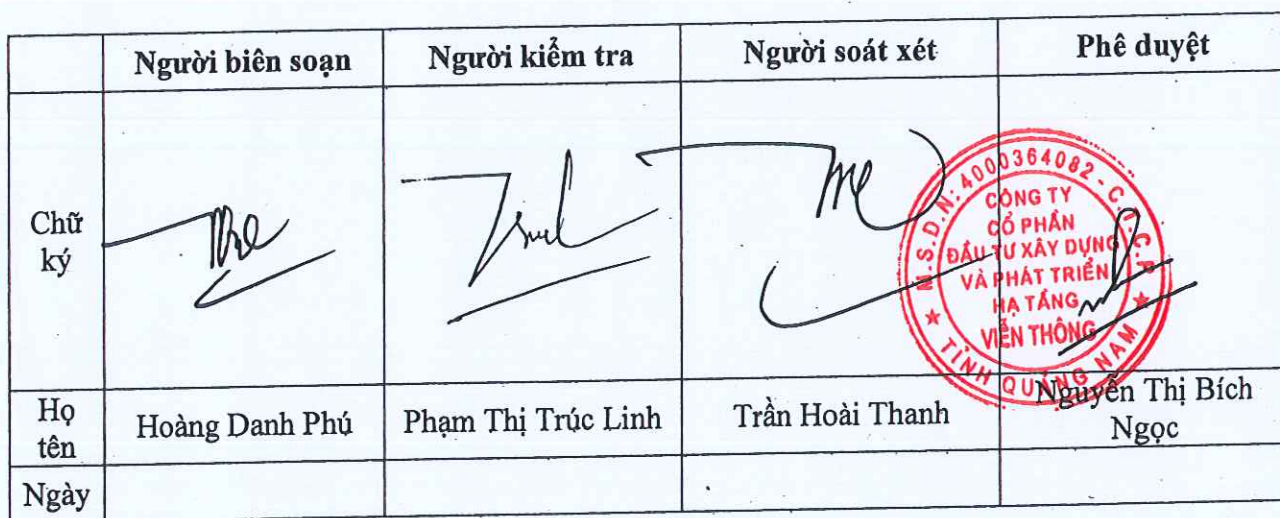 Người biên soạn
Người kiểm tra
Người soát xét
Phê duyệt
Chữ
ký
M.S.D.N: 4000364082 - C.T.C.P
CÔNG TY
CỔ PHẦN
ĐẦU TƯ XÂY DỰNG
VÀ PHÁT TRIỂN
HẠ TẦNG
VIỄN THÔNG
★ TỈNH QUẢNG NAM ★
Họ
tên
Hoàng Danh Phú
Phạm Thị Trúc Linh
Trần Hoài Thanh
Nguyễn Thị Bích
Ngọc
Ngày